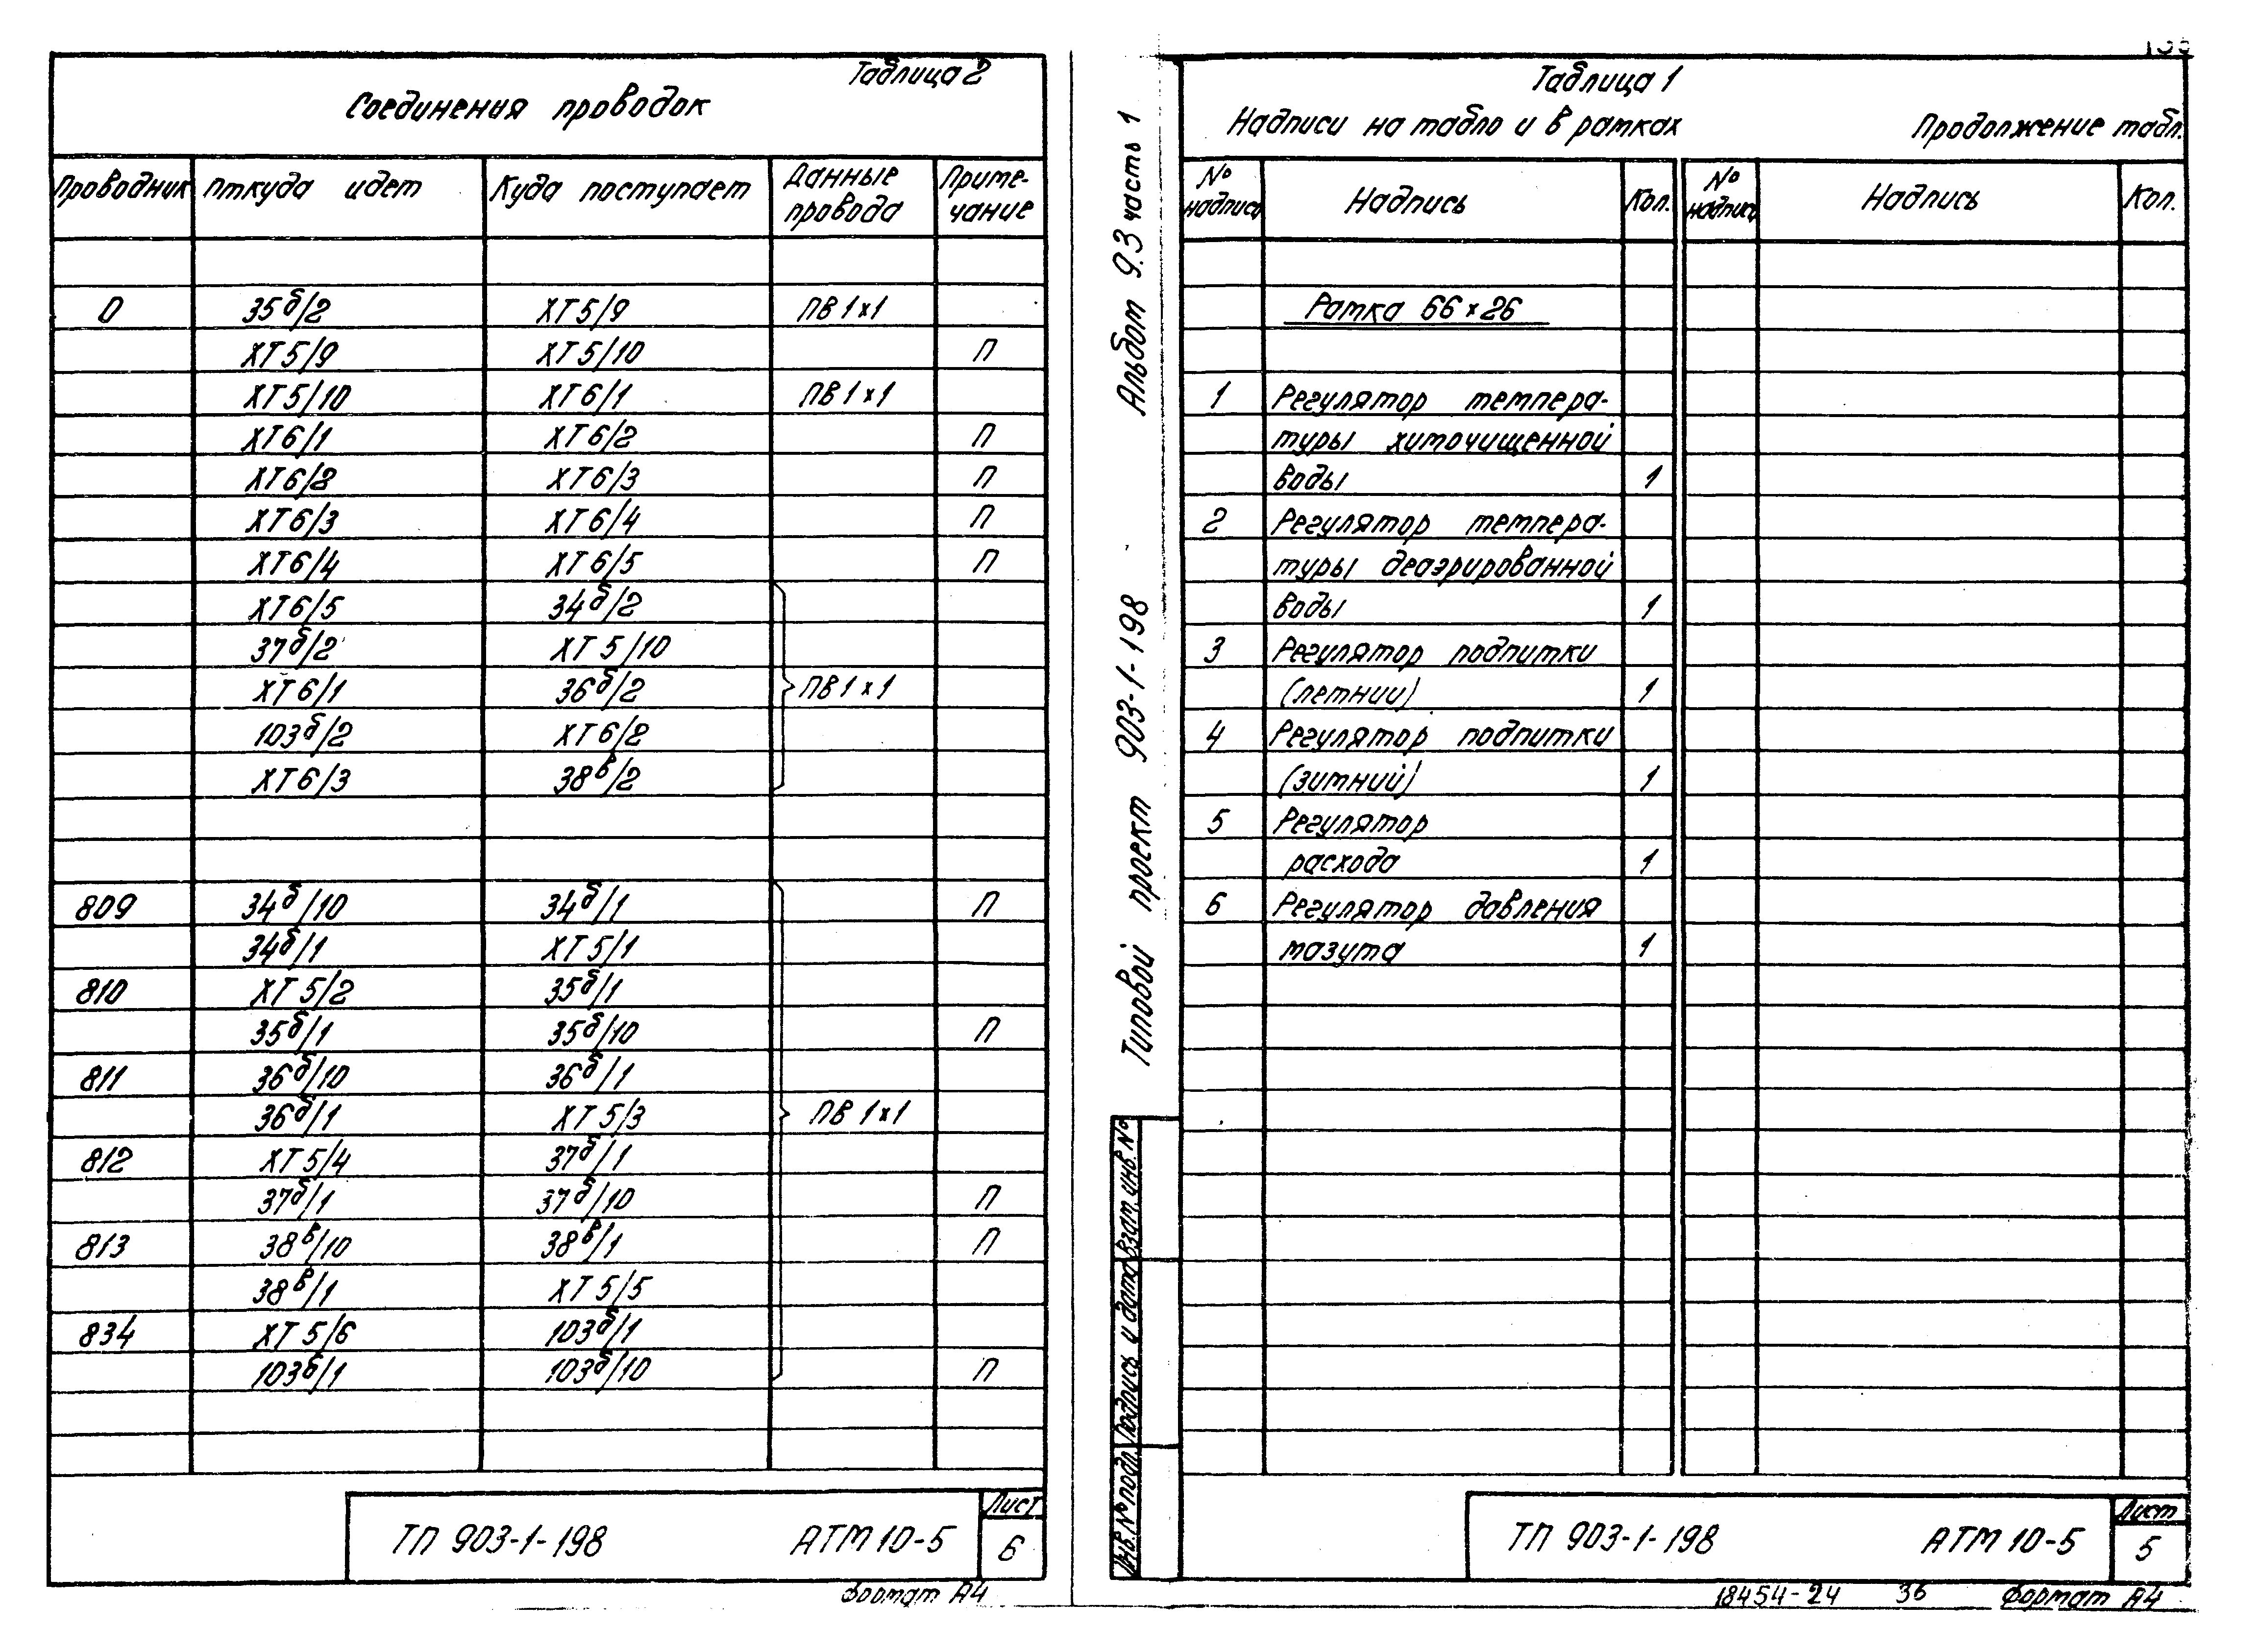 Таблица 2
Соединения проводок
Проводник Откуда идет Куда поступает Данные провода Приме-чание
0 35б/2 ХТ5/9 ПВ 1×1
ХТ5/9 ХТ5/10 П
ХТ5/10 ХТ6/1 ПВ 1×1
ХТ6/1 ХТ6/2 П
ХТ6/2 ХТ6/3 П
ХТ6/3 ХТ6/4 П
ХТ6/4 ХТ6/5 П
ХТ6/5 34б/2
37б/2 ХТ5/10
ХТ6/1 36б/2 ПВ 1×1
103б/2 ХТ6/2
ХТ6/3 38в/2
809 34б/10 34б/1 П
34б/1 ХТ5/1
810 ХТ5/2 35б/1
35б/1 35б/10 П
811 36б/10 36б/1
36б/1 ХТ5/3 ПВ 1×1
812 ХТ5/4 37б/1
37б/1 37б/10 П
813 38в/10 38в/1 П
38в/1 ХТ5/5
834 ХТ5/6 103б/1
103б/1 103б/10 П
ТП 903-1-198 АТМ 10-5 Лист 6
Формат А4
Альбом 9.3 часть 1
Типовой проект 903-1-198
Взам. инв. №
Подпись и дата
Инв. № подл.
Таблица 1
Надписи на табло и в рамках Продолжение табл.
№ надписи Надпись Кол. № надписи Надпись Кол.
Рамка 66×26
1 Регулятор темпера-
туры химочищенной
воды 1
2 Регулятор темпера-
туры деаэрированной
воды 1
3 Регулятор подпитки
(летний) 1
4 Регулятор подпитки
(зимний) 1
5 Регулятор
расхода 1
6 Регулятор давления
мазута 1
ТП 903-1-198 АТМ 10-5 Лист 5
18454-24 36 Формат А4